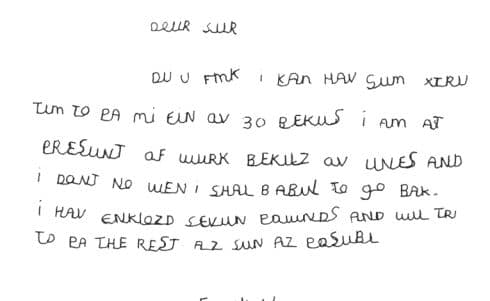 DEUR SUR
DU U FINK I KAN HAV SUM XTRU
TIM TO PA MI FIN OV 30 BEKUS I AM AT
PRESUNT OF WURK BEKUZ OV ULNES AND
I DONT NO WEN I SHAL B ABUL TO GO BAK.
I HAV ENKLOZD SEVUN POUWNDS AND WUL TRI
TO PA THE REST AZ SUN AZ POSUBL